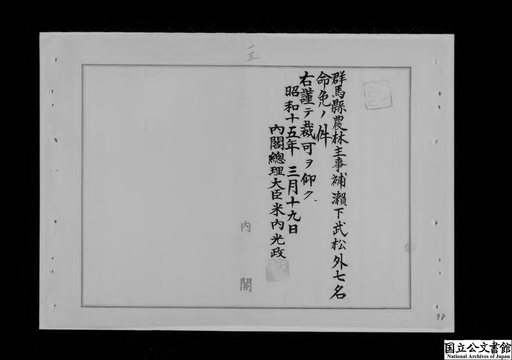 群馬縣農林主事補瀨下武松外七名
命免ノ件
右謹テ裁可ヲ仰ク
昭和十五年三月十九日
內閣總理大臣米內光政
內閣
98
国立公文書館
National Archives of Japan